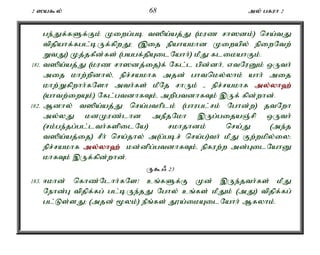 2 ஸயகூல் 68 அல் பகரா 2
பந்துக்களுக்கும் முறைப்படி வஸிய்யத்து (மரண சாஸனம்) செய்வது
விதியாக்கபட்டிருக்கிறது. (இதை நியாயமான முறையில் நிறைவேற்
றுவது) முத்தகீன்கள் (பயபக்தியுடையோர்) மீது கடமையாகும்.
181. வஸிய்யத்து (மரண சாஸனத்தை)க் கேட்ட பின்னர், எவரேனும் ஒருவர்
அதை மாற்றினால், நிச்சயமாக அதன் பாவமெல்லாம் யார் அதை
மாற்றுகிறார்களோ அவர்கள் மீதே சாரும் - நிச்சயமாக அல்லாஹ்
(யாவற்றையும்) கேட்பவனாகவும், அறிபவனாகவும் இருக் கின்றான்.
182. ஆனால் வஸிய்யத்து செய்பவரிடம் (பாரபட்சம் போன்ற) தவறோ
அல்லது மனமுரண்டான அநீதமோ இருப்பதையஞ்சி ஒருவர்
(சம்பந்தப்பட்டவர்களிடையே) சமாதானம் செய்து (அந்த
வஸிய்யத்தை) சீர் செய்தால் அப்படிச் செய்ப)வர் மீது குற்றமில்லை;
நிச்சயமாக அல்லாஹ் மன்னிப்பவனாகவும், நிகரற்ற அன்புடையோனு
மாகவும் இருக்கின்றான்.
ருகூஃ 23
183. ஈமான் கொண்டோர்களே! உங்களுக்கு முன் இருந்தவர்கள் மீது
நோன்பு விதிக்கப் பட்டிருந்தது போல் உங்கள் மீதும் (அது) விதிக்கப்
பட்டுள்ளது; (அதன் மூலம்) நீங்கள் தூய்மையுடையோர் ஆகலாம்.